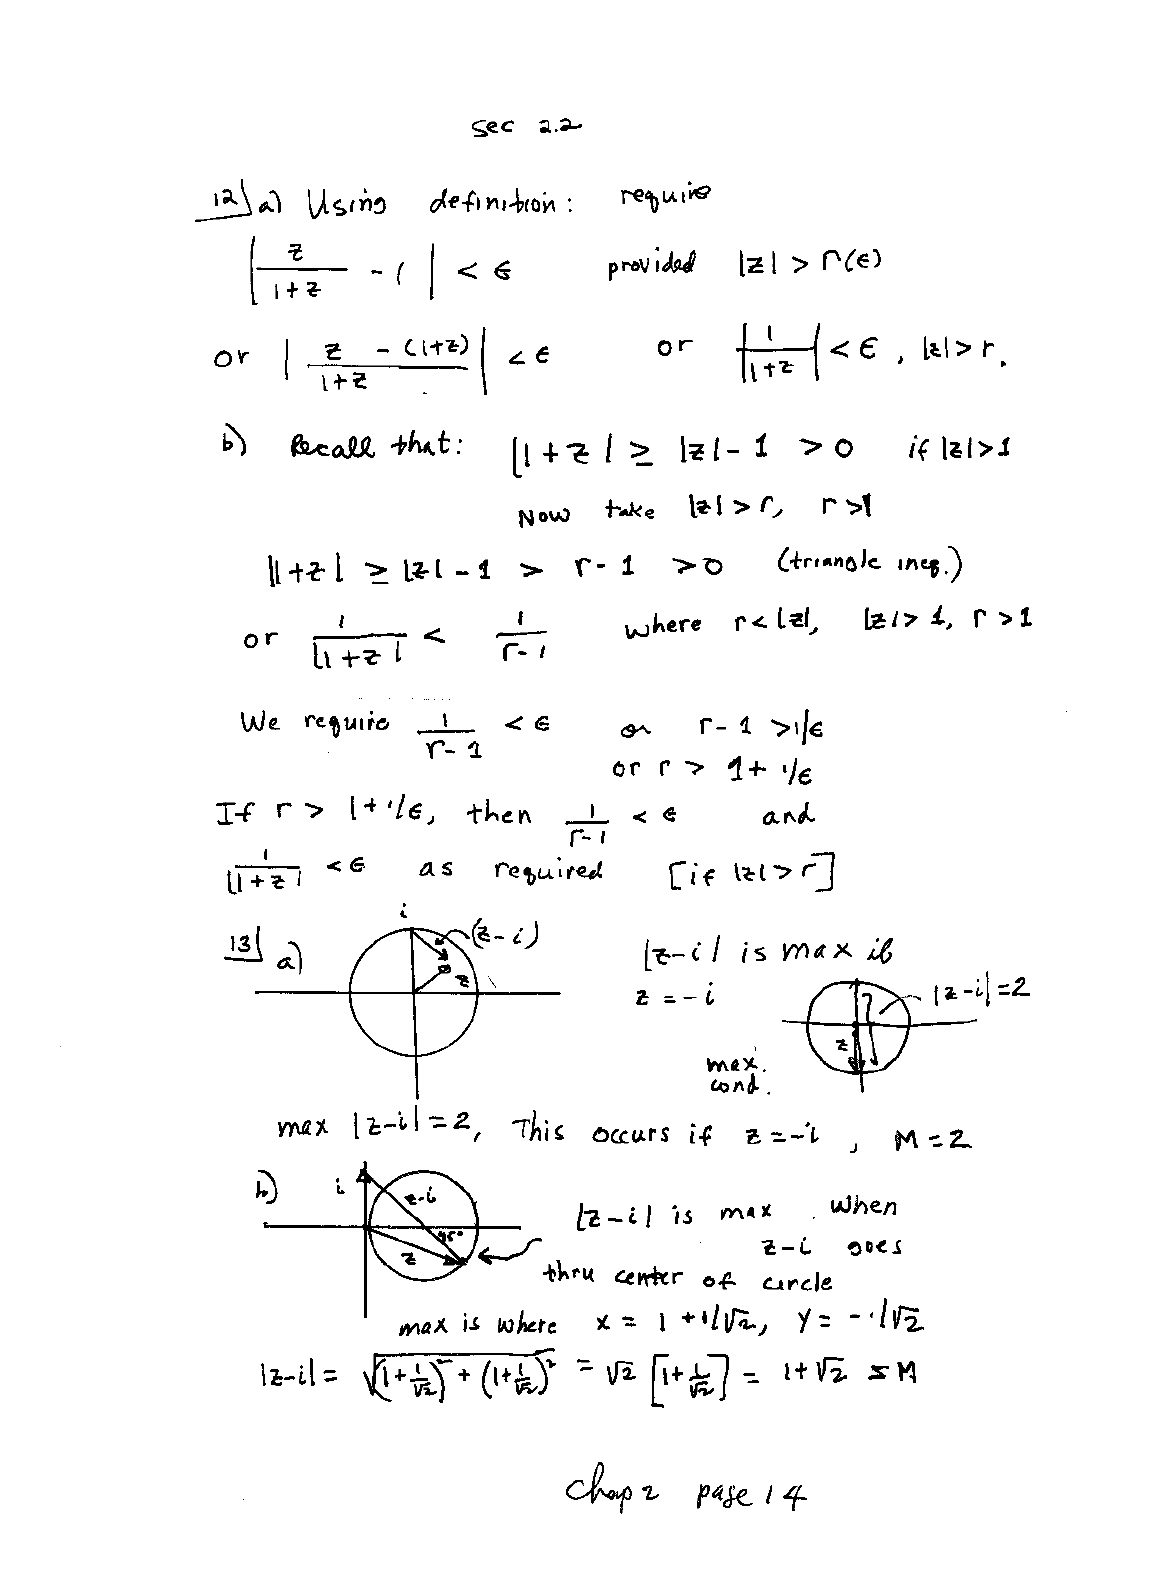 sec 2.2
12) a) Using definition: require
| z/(1+z) - 1 | < ϵ provided |z| > r(ϵ)
or | (z - (1+z))/(1+z) | < ϵ or | 1/(1+z) | < ϵ, |z|>r.
b) Recall that: |1+z| ≥ |z| - 1 > 0 if |z|>1
Now take |z|>r, r>1
|1+z| ≥ |z| - 1 > r - 1 > 0 (triangle ineq.)
or 1/|1+z| < 1/(r-1) where r<|z|, |z|>1, r>1
We require 1/(r-1) < ϵ or r-1 > 1/ϵ
or r > 1+ 1/ϵ
If r > 1+1/ϵ, then 1/(r-1) < ϵ and
1/|1+z| < ϵ as required [if |z|>r]
13) a) i (z-i) z
|z-i| is max if
z = -i
|z-i|=2
z
max.
cond.
max |z-i| = 2, This occurs if z = -i, M = 2
b) i z-i 45° z
|z-i| is max when
z-i goes
thru center of circle
max is where x = 1+1/√2, y = -1/√2
|z-i| = √((1+1/√2)² + (1+1/√2)²) = √2 [1+1/√2] = 1+√2 = M
Chap 2 page 14